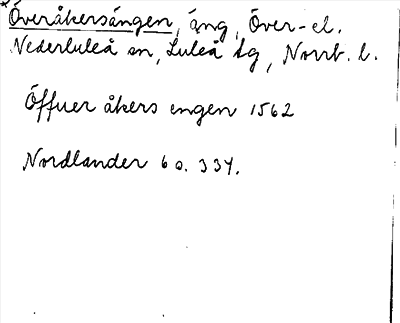 *Överåkersängen, äng, Över- el.
Nederluleå sn, Luleå tg, Norrb. l.
Öffuer åkers engen 1562
Nordlander 6 s. 334.